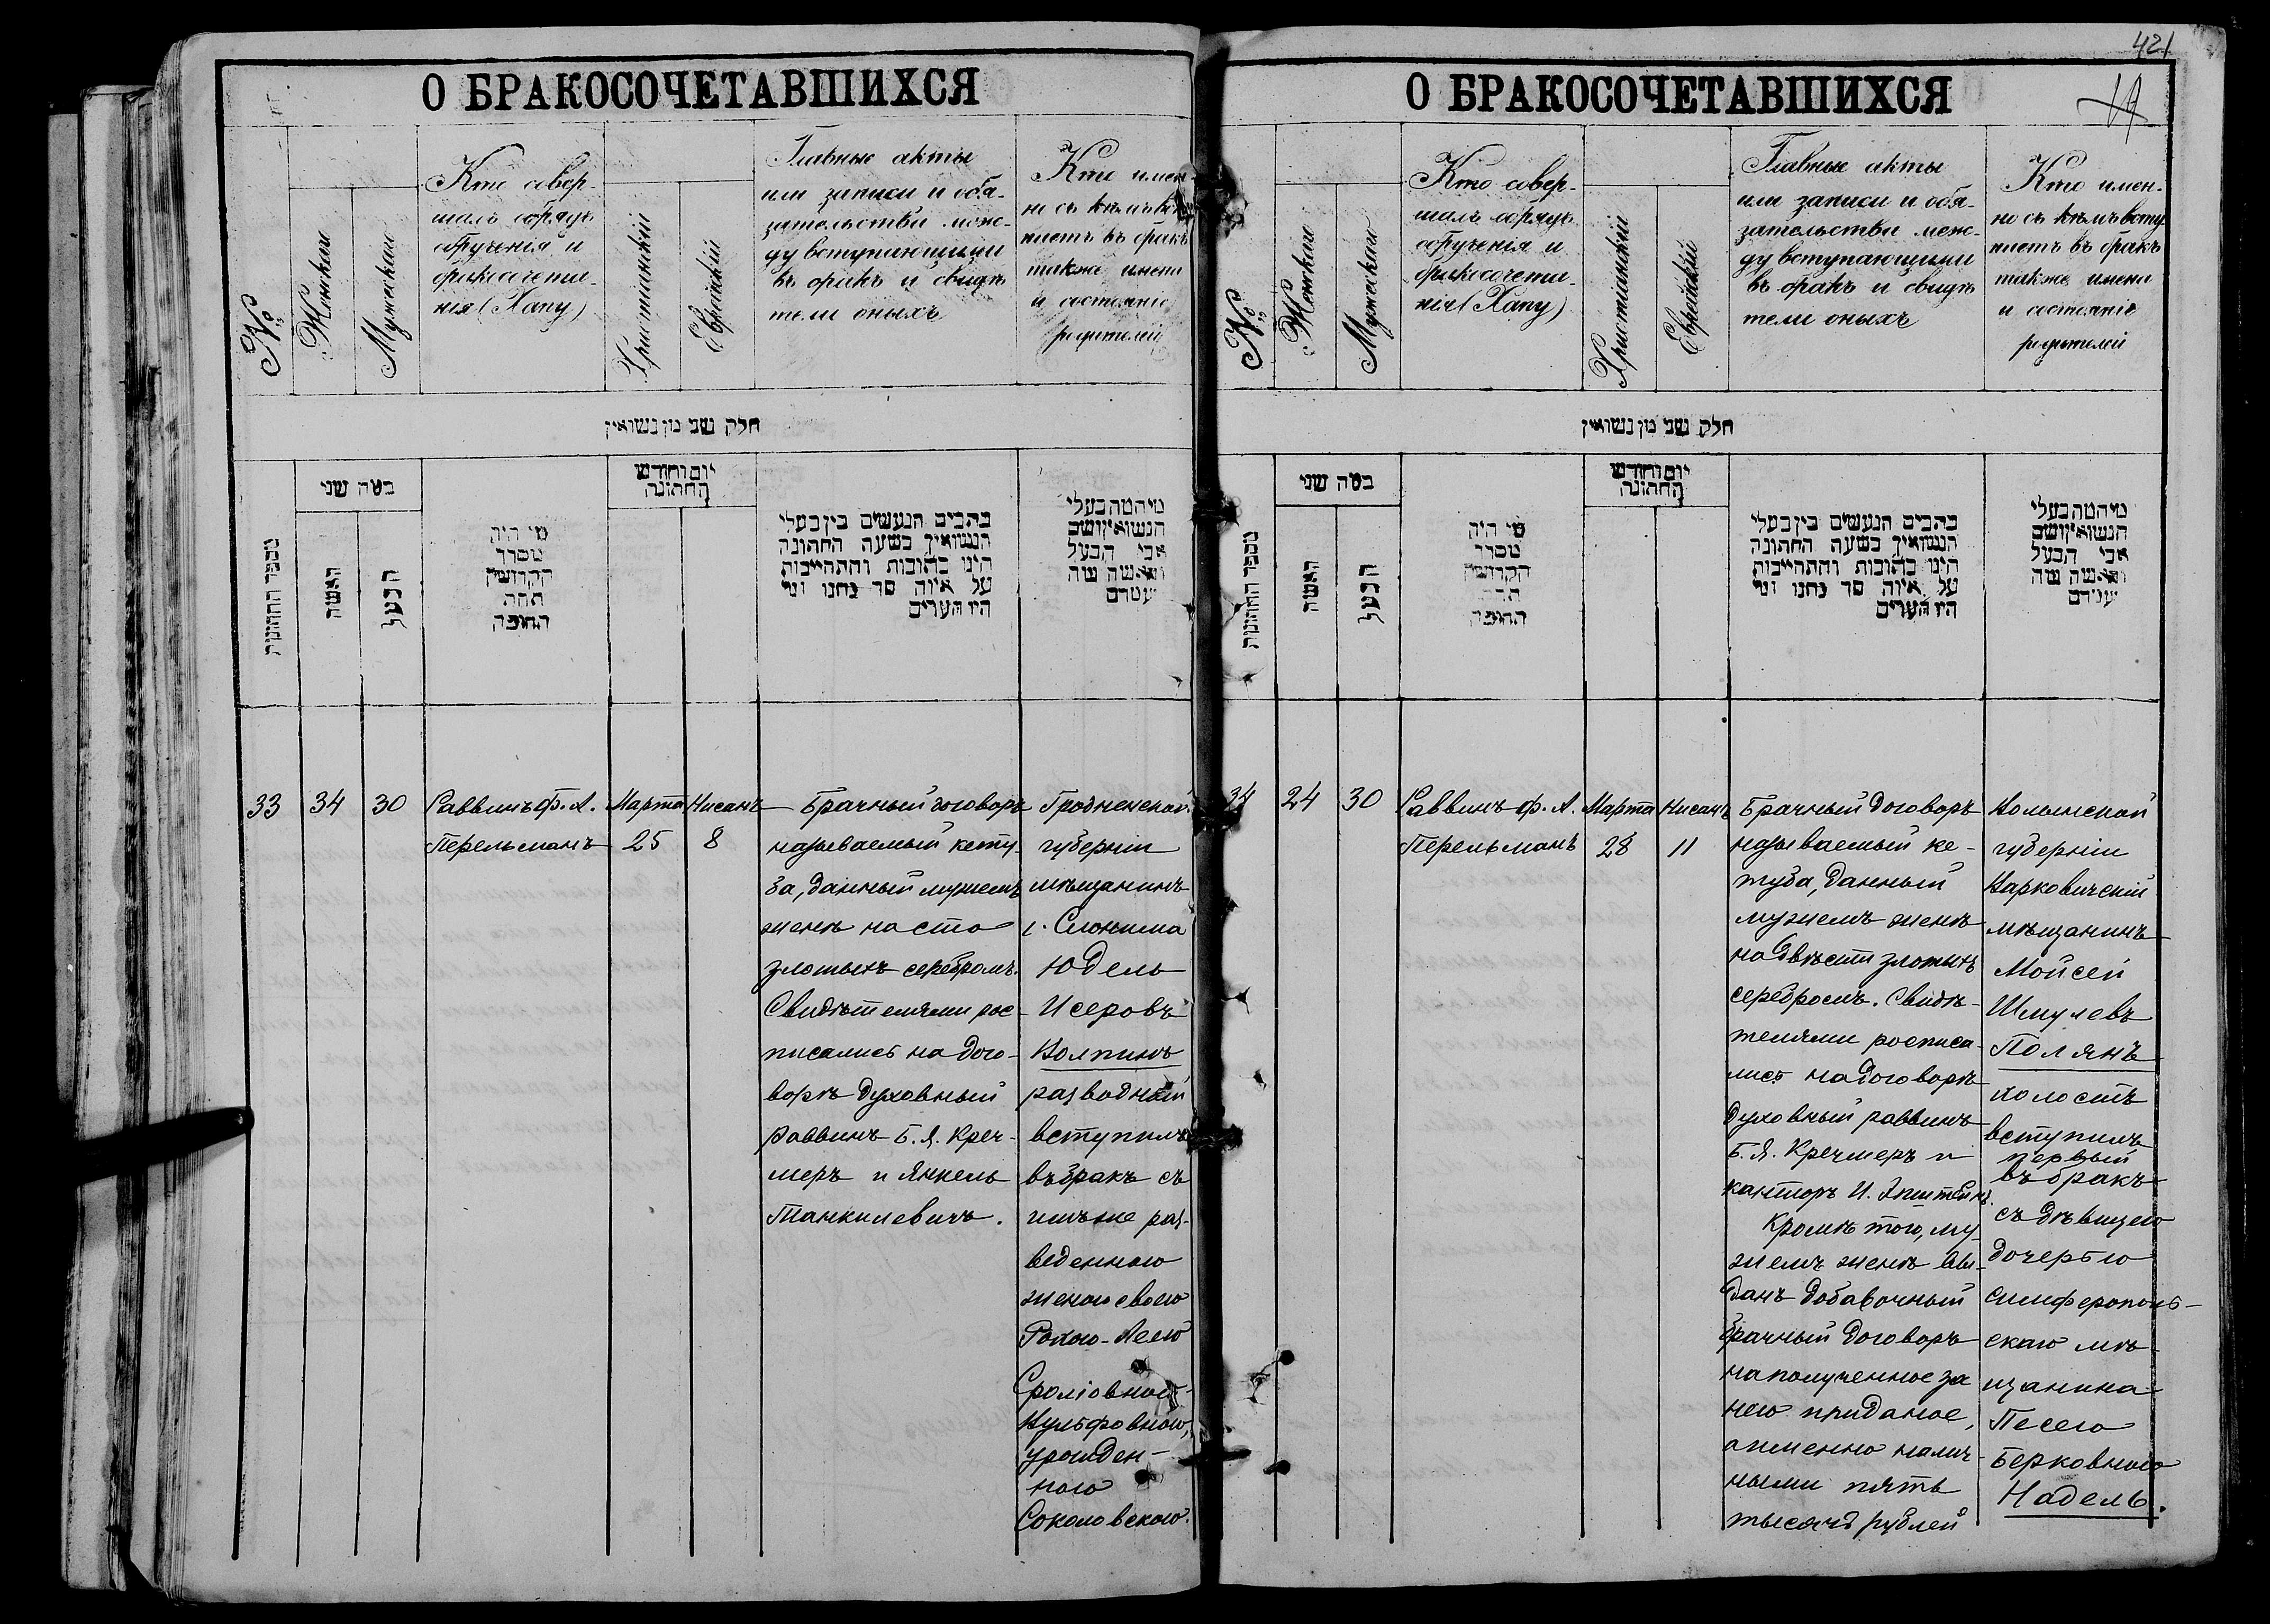 О БРАКОСОЧЕТАВШИХСЯ
№
Женскаго
Мужескаго
Кто совер-
шалъ обрядъ
обрученія и
бракосочета-
нія (Хапу)
Христіанскій
Еврейскій
Главные акты
или записи и обя-
зательства меж-
ду вступающими
въ бракъ и свидѣ
тели оныхъ
Кто имен-
но съ кѣмъ всту
паетъ въ бракъ
также имена
и состояніе
родителей
חלק שני מן נשואין
מספר החתונות
במה שני
האשה
הבעל
מי היה
מסדר
הקדושין
תחת
החופה
יום וחודש
החתונה
כתבים הנעשים בין בעלי
הנשואין בשעת החתונה
היינו כתובות והתחייבות
על איזה סך נתנו ומי
היו העדים
מי המה בעלי
הנשואין ושם
אבי הבעל
והאשה
33
34
30
Раввинъ Ф. А.
Перельманъ
Марта
25
Нисанъ
8
Брачный договоръ
называемый кету-
ба, данный мужемъ
женѣ на сто
злотыхъ серебромъ.
Свидѣтелями рос-
писались на дого-
ворѣ духовный
раввинъ Б. Я. Креч-
меръ и Янкель
Танкилевичъ.
Гродненской
губерніи
мѣщанинъ
г. Слонима
Юдель
Исеровъ
Волпинъ
разводный
вступилъ
въ бракъ съ
имъ же раз-
веденною
женою своею
Рохою-Леею
Сроліовной
Вульфовною,
урожден-
ною
Соколовскою.
421
О БРАКОСОЧЕТАВШИХСЯ
№
Женскаго
Мужескаго
Кто совер-
шалъ обрядъ
обрученія и
бракосочета-
нія (Хапу)
Христіанскій
Еврейскій
Главные акты
или записи и обя-
зательства меж-
ду вступающими
въ бракъ и свидѣ
тели оныхъ
Кто имен-
но съ кѣмъ всту
паетъ въ бракъ
также имена
и состояніе
родителей
חלק שני מן נשואין
מספר החתונות
במה שני
האשה
הבעל
מי היה
מסדר
הקדושין
החופה
יום וחודש
החתונה
כתבים הנעשים בין בעלי
הנשואין בשעת החתונה
היינו כתובות והתחייבות
על איזה סך נתנו ומי
היו העדים
מי המה בעלי
הנשואין ושם
אבי הבעל
והאשה
34
24
30
Раввинъ Ф. А.
Перельманъ
Марта
28
Нисанъ
11
Брачный договоръ
называемый ке-
туба, данный
мужемъ женѣ
на двѣсти злотыхъ
серебромъ. Свидѣ-
телями росписа-
лись на договорѣ
духовный раввинъ
Б. Я. Кречмеръ и
канторъ И. Эпштейнъ.
Кромѣ того, му-
жемъ женѣ вы-
данъ добавочный
брачный договоръ
на полученное за
нею приданое,
а именно налич-
ными пять
тысячъ рублей
Волынской
губерніи
мѣщанинъ
Мойсей
Шмулевъ
Полянъ
холостъ
вступилъ
первый
въ бракъ
съ дѣвицею
дочерью
симферополь-
скаго мѣ-
щанина
Песею
Берковною
Надель.